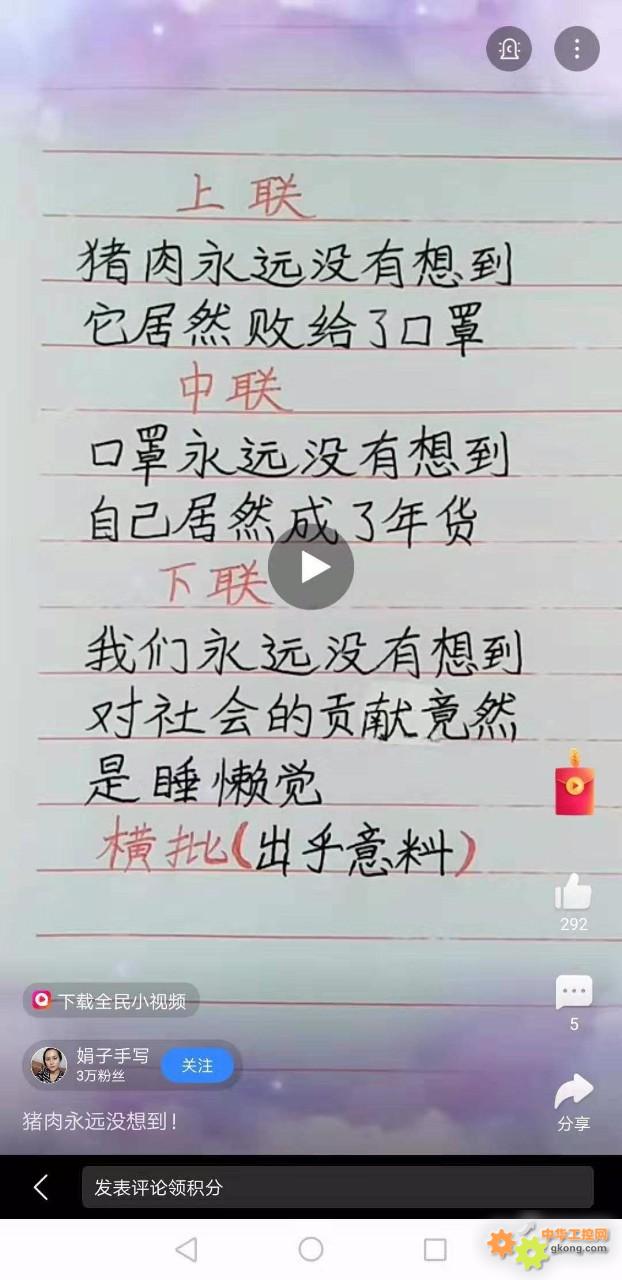 上联
猪肉永远没有想到
它居然败给了口罩
中联
口罩永远没有想到
自己居然成了年货
下联
我们永远没有想到
对社会的贡献竟然
是睡懒觉
横批(出乎意料)
292
下载全民小视频
5
娟子手写
3万粉丝
关注
分享
猪肉永远没想到!
发表评论领积分
中华工控网
gkong.com